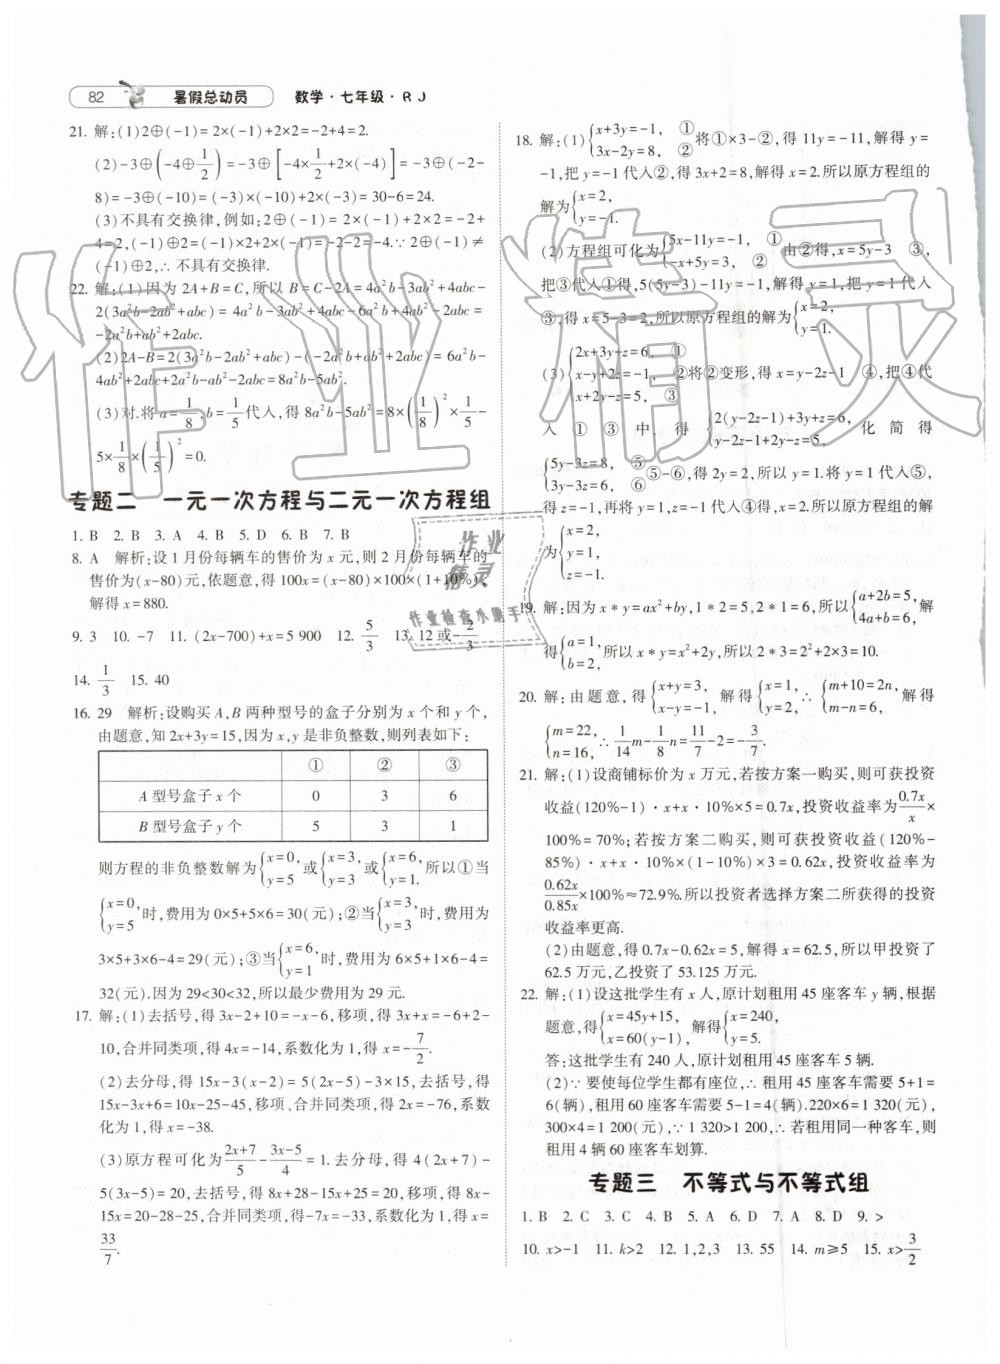 82 暑假总动员 数学·七年级·RJ
21. 解:(1)2⊕(-1)=2×(-1)+2×2=-2+4=2.
(2)-3⊕(-4⊕1/2)=-3⊕[-4×1/2+2×(-4)]=-3⊕(-2-
8)=-3⊕(-10)=(-3)×(-10)+2×(-3)=30-6=24.
(3)不具有交换律,例如:2⊕(-1)=2×(-1)+2×2=-2+
4=2,(-1)⊕2=(-1)×2+2×(-1)=-2-2=-4.∵2⊕(-1)≠
(-1)⊕2,∴不具有交换律.
22. 解:(1)因为2A+B=C,所以B=C-2A=4a²b-3ab²+4abc-
2(3a²b-2ab²+abc)=4a²b-3ab²+4abc-6a²b+4ab²-2abc=
-2a²b+ab²+2abc.
(2)2A-B=2(3a²b-2ab²+abc)-(-2a²b+ab²+2abc)=6a²b-
4ab²+2abc+2a²b-ab²-2abc=8a²b-5ab².
(3)对.将a=1/8,b=1/5代入,得8a²b-5ab²=8×(1/8)²×1/5-
5×1/8×(1/5)²=0.
专题二 一元一次方程与二元一次方程组
1. B 2. B 3. A 4. B 5. D 6. B 7. B
8. A 解析:设1月份每辆车的售价为x元,则2月份每辆车的
售价为(x-80)元,依题意,得100x=(x-80)×100×(1+10%),
解得x=880.
9. 3 10. -7 11. (2x-700)+x=5 900 12. 5/3 13. 12或-2/3
14. 1/3 15. 40
16. 29 解析:设购买A,B两种型号的盒子分别为x个和y个,
由题意,知2x+3y=15,因为x,y是非负整数,则列表如下:
① ② ③
A型号盒子x个 0 3 6
B型号盒子y个 5 3 1
则方程的非负整数解为{x=0, y=5 或{x=3, y=3 或{x=6, y=1. 所以①当
{x=0, y=5 时,费用为0×5+5×6=30(元);②当{x=3, y=3 时,费用为
3×5+3×6-4=29(元);③当{x=6, y=1 时,费用为6×5+1×6-4=
32(元).因为29<30<32,所以最少费用为29元.
17. 解:(1)去括号,得3x-2+10=-x-6,移项,得3x+x=-6+2-
10,合并同类项,得4x=-14,系数化为1,得x=-7/2.
(2)去分母,得15x-3(x-2)=5(2x-5)-3×15,去括号,得
15x-3x+6=10x-25-45,移项、合并同类项,得2x=-76,系数
化为1,得x=-38.
(3)原方程可化为(2x+7)/5-(3x-5)/4=1.去分母,得4(2x+7)-
5(3x-5)=20,去括号,得8x+28-15x+25=20,移项,得8x-
15x=20-28-25,合并同类项,得-7x=-33,系数化为1,得x=
33/7.
18. 解:(1){x+3y=-1, ① 3x-2y=8, ② 将①×3-②,得11y=-11,解得y=
-1,把y=-1代入②,得3x+2=8,解得x=2.所以原方程组的
解为{x=2, y=-1.
(2)方程组可化为{5x-11y=-1, ① -x+5y=3, ② 由②得,x=5y-3 ③,
把③代入①得,5(5y-3)-11y=-1,解得y=1,把y=1代入
③,得x=5-3=2,所以原方程组的解为{x=2, y=1.
(3){2x+3y+z=6, ① x-y+2z=-1, ② x+2y-z=5, ③ 将②变形,得x=y-2z-1 ④,把④代
入①③中,得{2(y-2z-1)+3y+z=6, y-2z-1+2y-z=5, 化简得
{5y-3z=8, ⑤ 3y-3z=6, ⑥ ⑤-⑥,得2y=2,所以y=1.把y=1代入⑤,
得z=-1,再将y=1,z=-1代入④,得x=2,所以原方程组的解
为{x=2, y=1, z=-1.
19. 解:因为x*y=ax²+by,1*2=5,2*1=6,所以{a+2b=5, 4a+b=6, 解
得{a=1, b=2, 所以x*y=x²+2y,所以2*3=2²+2×3=10.
20. 解:由题意,得{x+y=3, x-y=-1, 解得{x=1, y=2, ∴{m+10=2n, m-n=6, 解得
{m=22, n=16, ∴1/14m-1/8n=11/7-2=-3/7.
21. 解:(1)设商铺标价为x万元,若按方案一购买,则可获投资
收益(120%-1)·x+x·10%×5=0.7x,投资收益率为0.7x/x×
100%=70%;若按方案二购买,则可获投资收益(120%-
85%)·x+x·10%×(1-10%)×3=0.62x,投资收益率为
0.62x/0.85x×100%≈72.9%.所以投资者选择方案二所获得的投资
收益率更高.
(2)由题意,得0.7x-0.62x=5,解得x=62.5,所以甲投资了
62.5万元,乙投资了53.125万元.
22. 解:(1)设这批学生有x人,原计划租用45座客车y辆,根据
题意,得{x=45y+15, x=60(y-1), 解得{x=240, y=5.
答:这批学生有240人,原计划租用45座客车5辆.
(2)∵要使每位学生都有座位,∴租用45座客车需要5+1=
6(辆),租用60座客车需要5-1=4(辆).220×6=1 320(元),
300×4=1 200(元),∵1 320>1 200,∴若租用同一种客车,则
租用4辆60座客车划算.
专题三 不等式与不等式组
1. B 2. C 3. C 4. B 5. A 6. D 7. A 8. D 9. >
10. x>-1 11. k>2 12. 1,2,3 13. 55 14. m≥5 15. x>3/2
作业精灵
作业
精灵
作业检查小助手